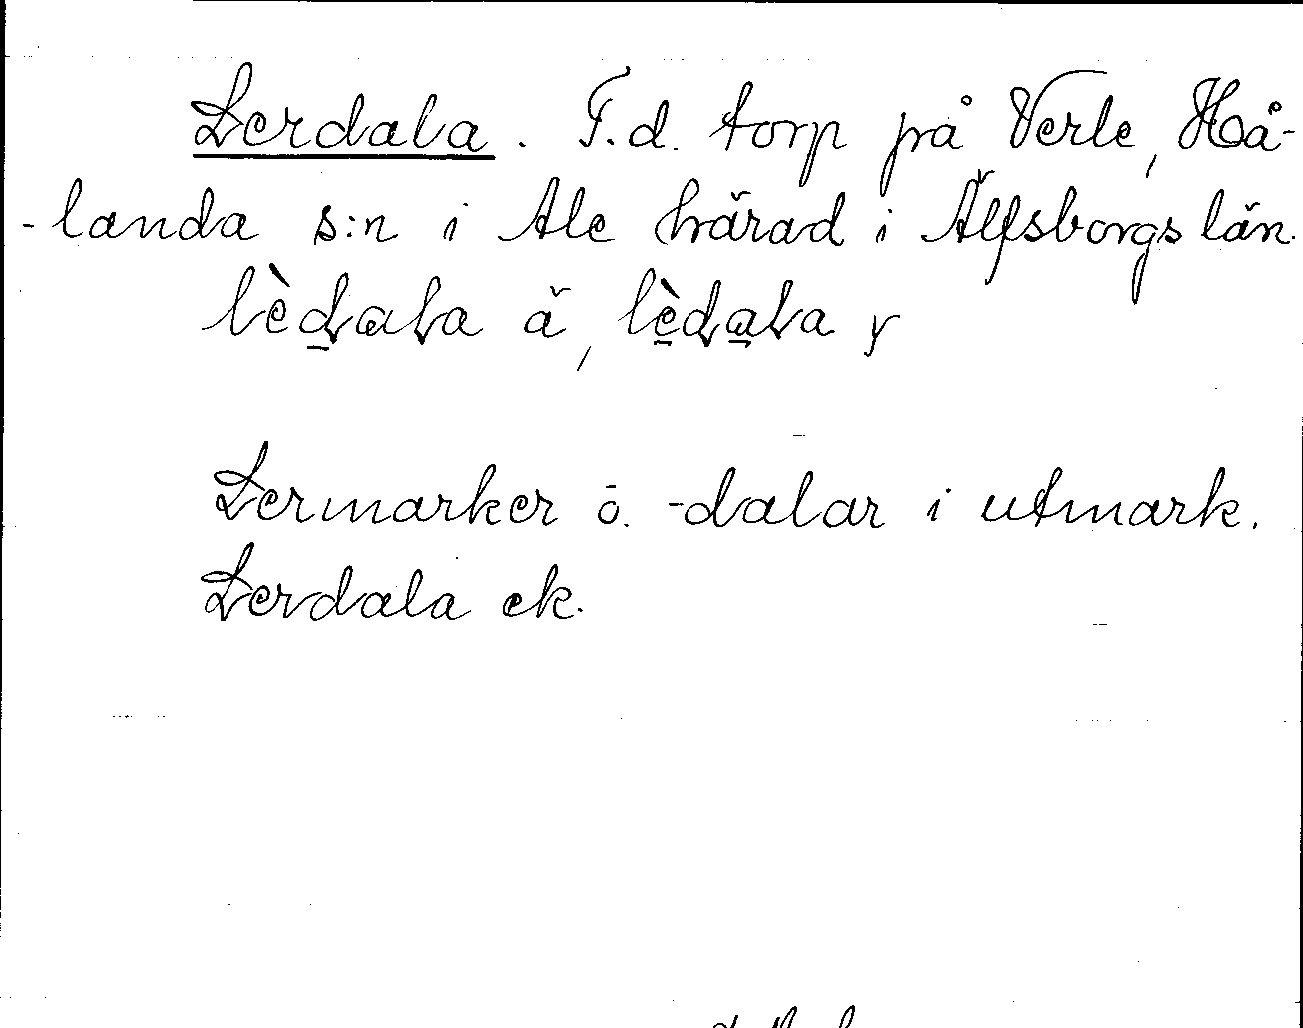 Lerdala. F.d. torp på Verle, Hå-
-landa s:n i Ale härad i Älfsborgs län.
lèdala ä, lèdala y
Lermarker o. -dalar i utmark.
Lerdala ek.